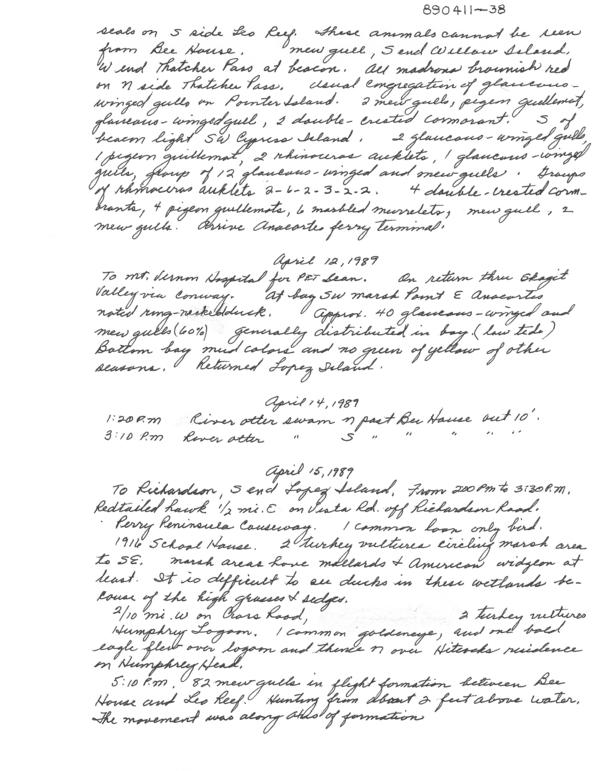 890411-38
seals on S side Leo Reef. These animals cannot be seen
from Bee House. mew gull, S end Willow Island.
W end Thatcher Pass at beacon. All madrona brownish red
on N side Thatcher Pass. Usual congregation of glaucous-
winged gulls on Pointer Island. 2 mew gulls, pigeon guillemot,
glaucous-winged gull, 2 double-crested cormorant. S of
beacon light SW Cypress Island. 2 glaucous-winged gulls,
1 pigeon guillemot, 2 rhinoceros auklets, 1 glaucous-winged
gulls, group of 12 glaucous-winged and mew gulls. Groups
of rhinoceros auklets 2-6-2-3-2-2. 4 double-crested corm-
orants, 4 pigeon guillemots, 6 marbled murrelets, mew gull, 2
mew gulls. Arrive Anacortes ferry terminal.
April 12, 1989
To Mt. Vernon Hospital for PET Scan. On return thru Skagit
Valley via Conway. At bay SW marsh Point E Anacortes
noted ring-necked duck. Approx. 40 glaucous-winged and
mew gulls (60%) generally distributed in bay (low tide)
Bottom bay mud colors and no green of yellow of other
seasons. Returned Lopez Island.
April 14, 1989
1:20 P.m River otter swam N past Bee House out 10'.
3:10 P.m River otter " S " " " " "
April 15, 1989
To Richardson, S end Lopez Island, From 200 Pm to 3:30 P.M.
Redtailed hawk 1/2 mi. E on Vista Rd. off Richardson Road.
Perry Peninsula Causeway. 1 common loon only bird.
1916 School House. 2 turkey vultures circling marsh area
to SE. marsh areas have mallards & American widgeon at
least. It is difficult to see ducks in these wetlands be-
cause of the high grasses & sedges.
2/10 mi. W on Cross Road, 2 turkey vultures
Humphrey Lagoon. 1 common goldeneye, and one bald
eagle flew over lagoon and thence N over Hitcocks residence
on Humphrey Head.
5:10 P.m. 82 mew gulls in flight formation between Bee
House and Leo Reef. Hunting from about 2 feet above water.
The movement was along axis of formation